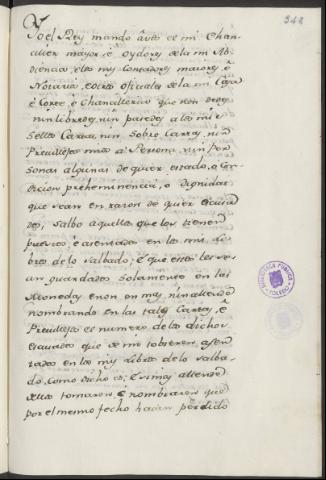 348
Yo el Rey mando a vos el mi Chan-
ciller mayor, è oydores de la mi Au-
diencia, è los mis Contadores maiores è
Notarios, è otros oficiales de la mi Casa
è Corte, è Chanzilleria que non dedes,
nin libredes, nin pasedes, nin
selledes Cartas, nin sobre Cartas, nin
Previllejos mios à Persona, nin Per-
sonas algunas de qualquier estado, o Con-
dicion, preheminencia, o dignidad
que sean en razon de qualquier escusa-
dos, salbo aquellos que los tienen
puestos, è asentados en los mis Li-
bros de lo salbado, è que estos les se-
an guardados solamente en las
Monedas, è non en mas, nin allende
nombrando en las tales Cartas, è
Previllejos el numero de los dichos
escusados que de mi tobieren asen-
tados en los mis Libros de lo salba-
do, como dicho es; è si mas allende
dellos tomaren, è nombraren que
por el mesmo fecho hayan perdido
BIBLIOTECA PUBLICA
TOLEDO